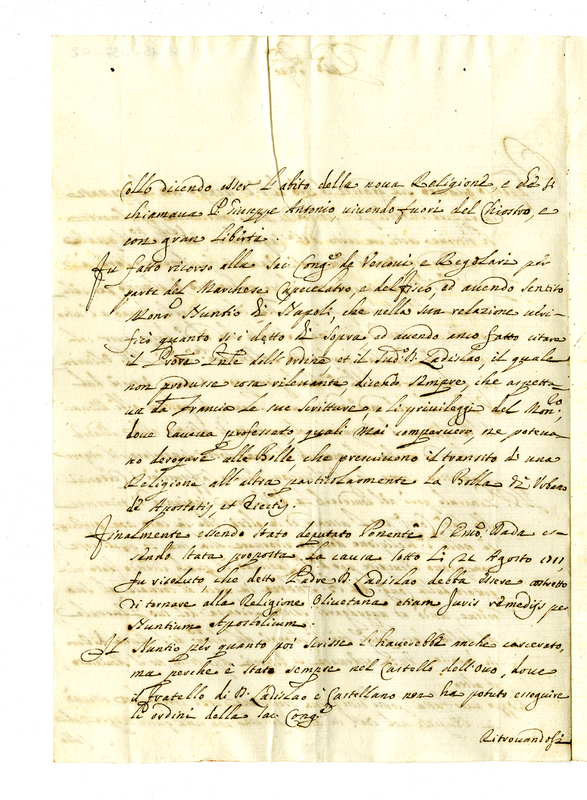 collo dicendo esser l'abito della nova Religione, e che si
chiamava P. Giuseppe Antonio, vivendo fuori del Chiostro, e
con gran libertà.
Fu fatto ricorso alla Sac. Cong.e de Vescovi, e Regolari per
parte del Marchese Capecelatro e del fisco, ed avendo sentito
Mons.r Nuntio di Napoli, che nella sua relazione veri-
ficò quanto si è detto di sopra ed avendo anco fatto citare
il Prõre dell'ordine et il Sud.o D. Ladislao, il quale
non produsse cosa rilevante, dicendo sempre, che aspetta
va da Francia le sue scritture, e li privileggi del Mon.ro,
dove haveva professato quali mai comparvero, ne poteva
no derogare alle Bolle, che prescivono il transito di una
Religione all'altra particolarmente la Bolla di Urbano
de Apostatis, et Eiectis.
Finalmente essendo stato deputato Ponente l'Emo. Dada es-
sendo stata proposta la causa sotto li 21 Agosto 1711,
fu risoluto, che detto Padre D. Ladislao debba essere costretto
di tornare alla Religione Olivetana etiam Juris remedijs per
Nuntium Apostolicum.
Il Nuntio per quanto poi scrisse l'haverebbe anche carcerato,
ma perche è stato sempre nel Castello dell'Ovo, dove
il fratello di D. Ladislao è Castellano non ha potuto eseguire
li ordini della Sac. Cong.e
Ritrovandosi